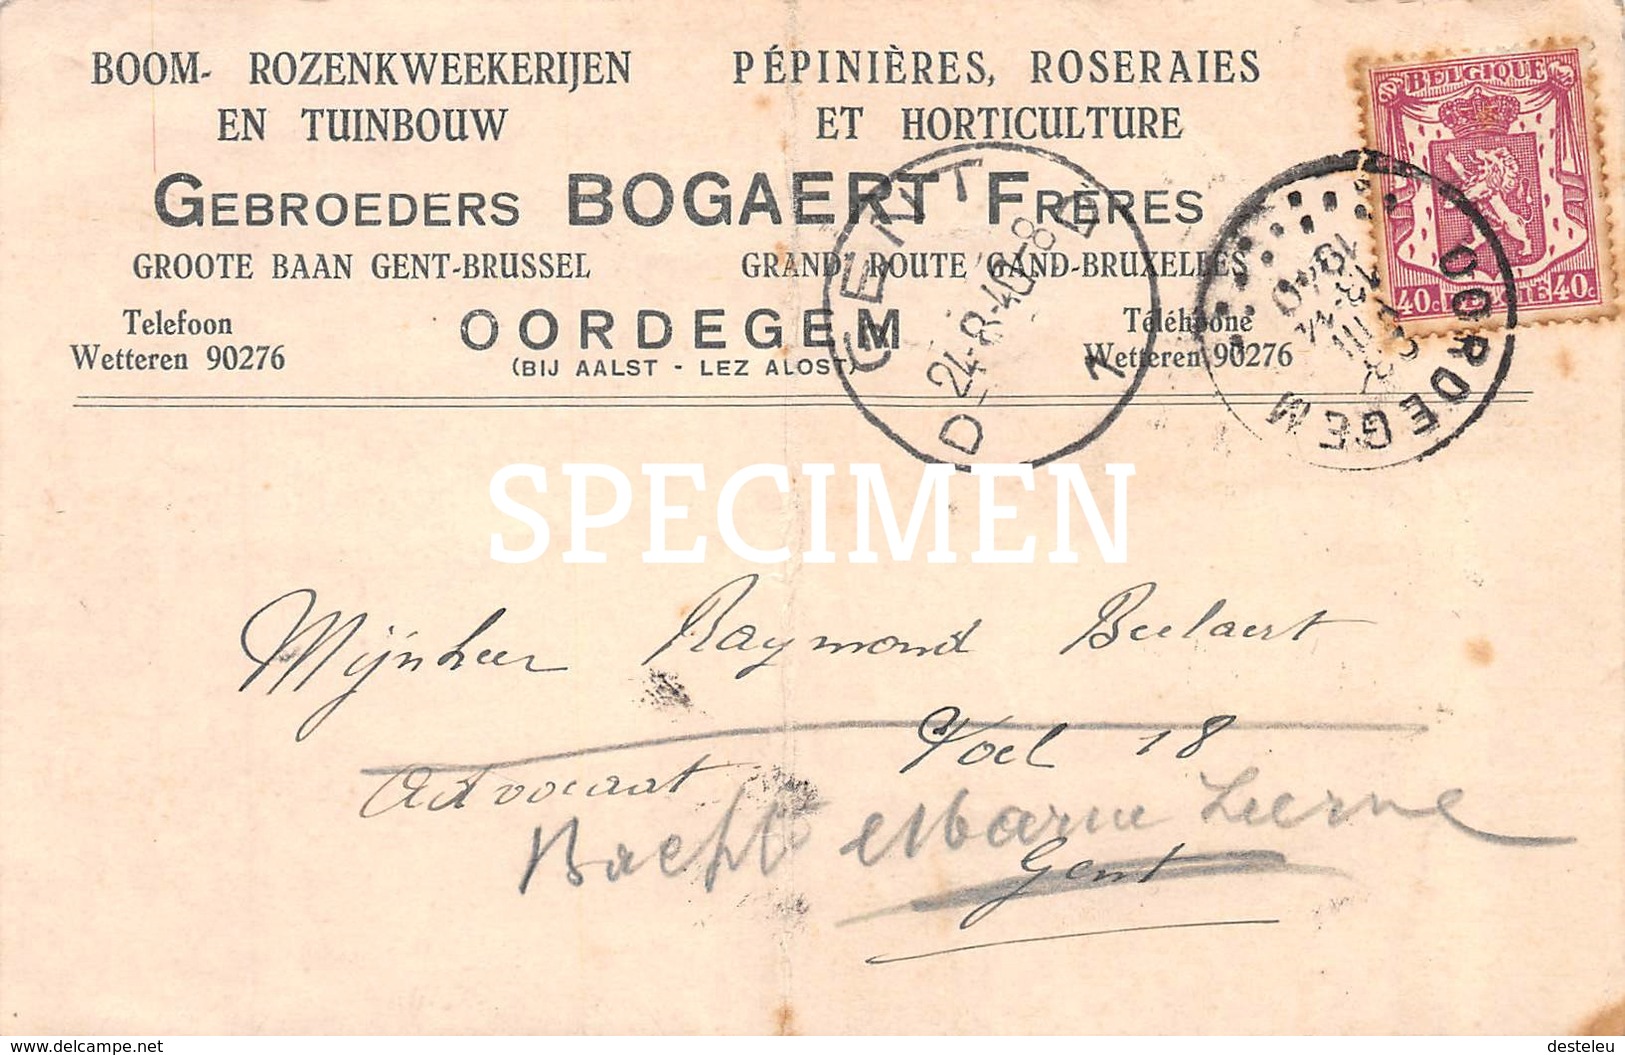 BOOM- ROZENKWEEKERIJEN
EN TUINBOUW
PÉPINIÈRES, ROSERAIES
ET HORTICULTURE
GEBROEDERS BOGAERT FRÈRES
GROOTE BAAN GENT-BRUSSEL
GRAND, ROUTE GAND-BRUXELLES
OORDEGEM
(BIJ AALST - LEZ ALOST)
Telefoon
Wetteren 90276
Téléphone
Wetteren 90276
BELGIQUE
40c BELGIE 40c
GENT
D 24-8-40 8
1
OORDEGEM
SPECIMEN
Mijnheer Raymond Beelaert
Advocaat
18
Gent
delcampe.net
desteleu